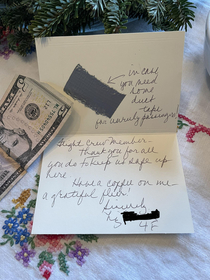 in case
you need
some
duct
tape
for unruly passengers
Flight Crew Member-
Thank you for all
you do to keep us safe up
here
Have a coffee on me
a grateful flyer!
Sincerely
4F